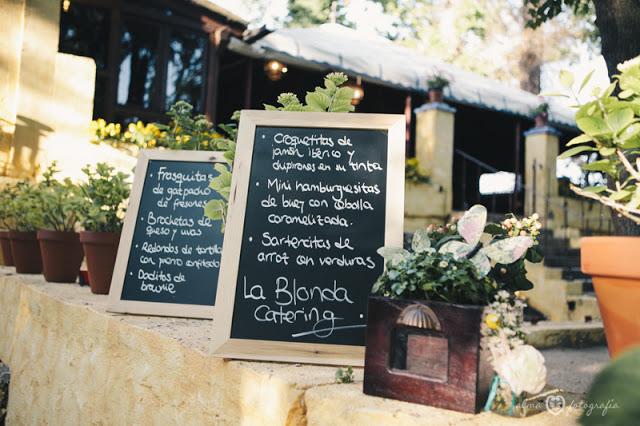 • Frasquitas
de gazpacho
de fresones
• Brochetas de
queso y uvas
• Redondos de tortilla
con pierro confitado
• Daditos de
brownie
• Croquetitas de
jamón ibérico y
chipirones en su tinta
• Mini hamburguesitas
de buey con cebolla
caramelizada.
• Sartercitas de
arroz con verduras
La Blonda
Catering
alma fotografía